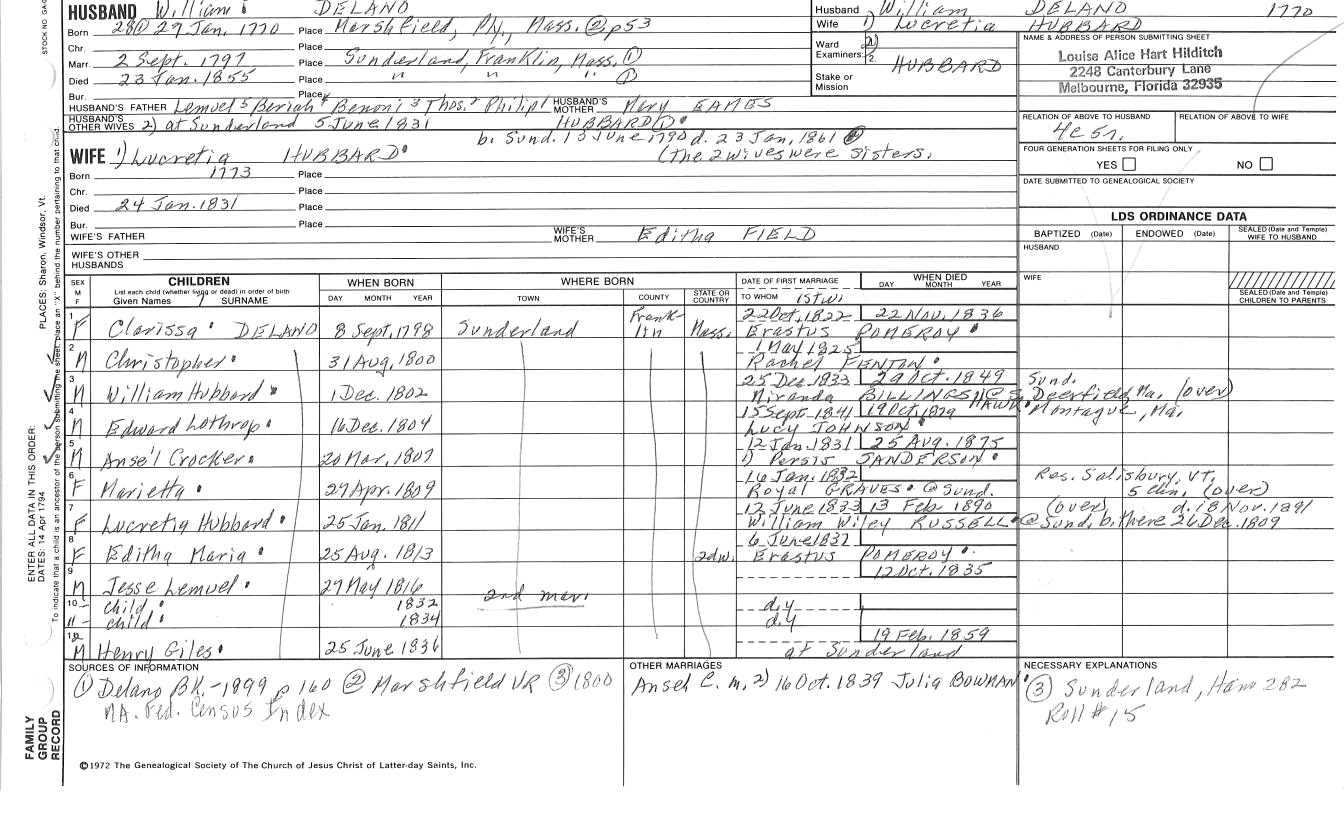 HUSBAND William DELANO
Born 28@ 29 Jan. 1770 Place Marshfield, Ply, Mass. ② p53
Chr. Place
Marr. 2 Sept. 1797 Place Sunderland, Franklin, Mass. ①
Died 23 Jan. 1855 Place " " " ①
Bur. Place
HUSBAND'S FATHER Lemuel 5 Beriah 4 Benoni 3 Thos. 2 Philip 1 HUSBAND'S MOTHER Mary EAMES
HUSBAND'S OTHER WIVES 2) at Sunderland 5 June 1831 HUBBARD ①
b. Sund. 13 June 1790 d. 23 Jan, 1861
WIFE 1) Lucretia HUBBARD (The 2 wives were sisters.
Born 1773 Place
Chr. Place
Died 24 Jan. 1831 Place
Bur. Place
WIFE'S FATHER WIFE'S MOTHER Editha FIELD
WIFE'S OTHER HUSBANDS
Husband William DELANO 1770
Wife 1) Lucretia HUBBARD
Ward 2)
Examiners: 1. 2. HUBBARD
Stake or Mission
NAME & ADDRESS OF PERSON SUBMITTING SHEET
Louise Alice Hart Hilditch
2248 Canterbury Lane
Melbourne, Florida 32935
RELATION OF ABOVE TO HUSBAND RELATION OF ABOVE TO WIFE
FOUR GENERATION SHEETS FOR FILING ONLY
YES NO
DATE SUBMITTED TO GENEALOGICAL SOCIETY
LDS ORDINANCE DATA
BAPTIZED (Date) ENDOWED (Date) SEALED (Date and Temple) WIFE TO HUSBAND
HUSBAND
WIFE
SEALED (Date and Temple) CHILDREN TO PARENTS
SEX M F CHILDREN WHEN BORN WHERE BORN DATE OF FIRST MARRIAGE WHEN DIED
List each child (whether living or dead) in order of birth
Given Names SURNAME DAY MONTH YEAR TOWN COUNTY STATE OR COUNTRY TO WHOM DAY MONTH YEAR
1st wi
1 F Clarissa DELANO 8 Sept. 1798 Sunderland Franklin Mass. 22 Oct. 1822 22 Nov. 1836
Erastus POMEROY
2 M Christopher 31 Aug. 1800 1 May 1825
Rachel FENTON
3 M William Hubbard 1 Dec. 1802 25 Dec. 1833 29 Oct. 1849 Sund.
Miranda BILLINGS @ Deerfield Ma. (over)
4 M Edward Lothrop 16 Dec. 1804 15 Sept. 1841 19 Oct. 1879 HAWK Montague, Ma.
Lucy JOHNSON
5 M Anse'l Crocker 20 Mar. 1807 12 Jan. 1831 25 Aug. 1875
1) Persis SANDERSON
6 F Marietta 29 Apr. 1809 16 Jan. 1832 Res. Salisbury, Vt.
Royal GRAVES @ Sund. 5 chn. (over)
7 F Lucretia Hubbard 25 Jan. 1811 12 June 1833 13 Feb 1890 (over) d. 18 Nov. 1891
William Wiley RUSSELL @ Sund, b. there 26 Dec. 1809
8 F Editha Maria 25 Aug. 1813 6 June 1837
2d w. Erastus POMEROY
9 M Jesse Lemuel 29 May 1816 12 Oct. 1835
2nd marr.
10 - child, 1832 d.y
11 - child 1834 d.y
12 M Henry Giles 25 June 1836 19 Feb. 1859
at Sunderland
SOURCES OF INFORMATION
① Delano BK.-1899 p 160 ② Marshfield VR ③ 1800
MA. Fed. Census Index
OTHER MARRIAGES
Ansel C. m. 2) 16 Oct. 1839 Julia BOWMAN
NECESSARY EXPLANATIONS
③ Sunderland, Ham 282
Roll #15
©1972 The Genealogical Society of The Church of Jesus Christ of Latter-day Saints, Inc.
FAMILY GROUP RECORD
ENTER ALL DATA IN THIS ORDER:
DATES: 14 Apr 1794
PLACES: Sharon, Windsor, Vt.
To indicate that a child is an ancestor of the person submitting the sheet, place an "X" behind the number pertaining to that child.
STOCK NO